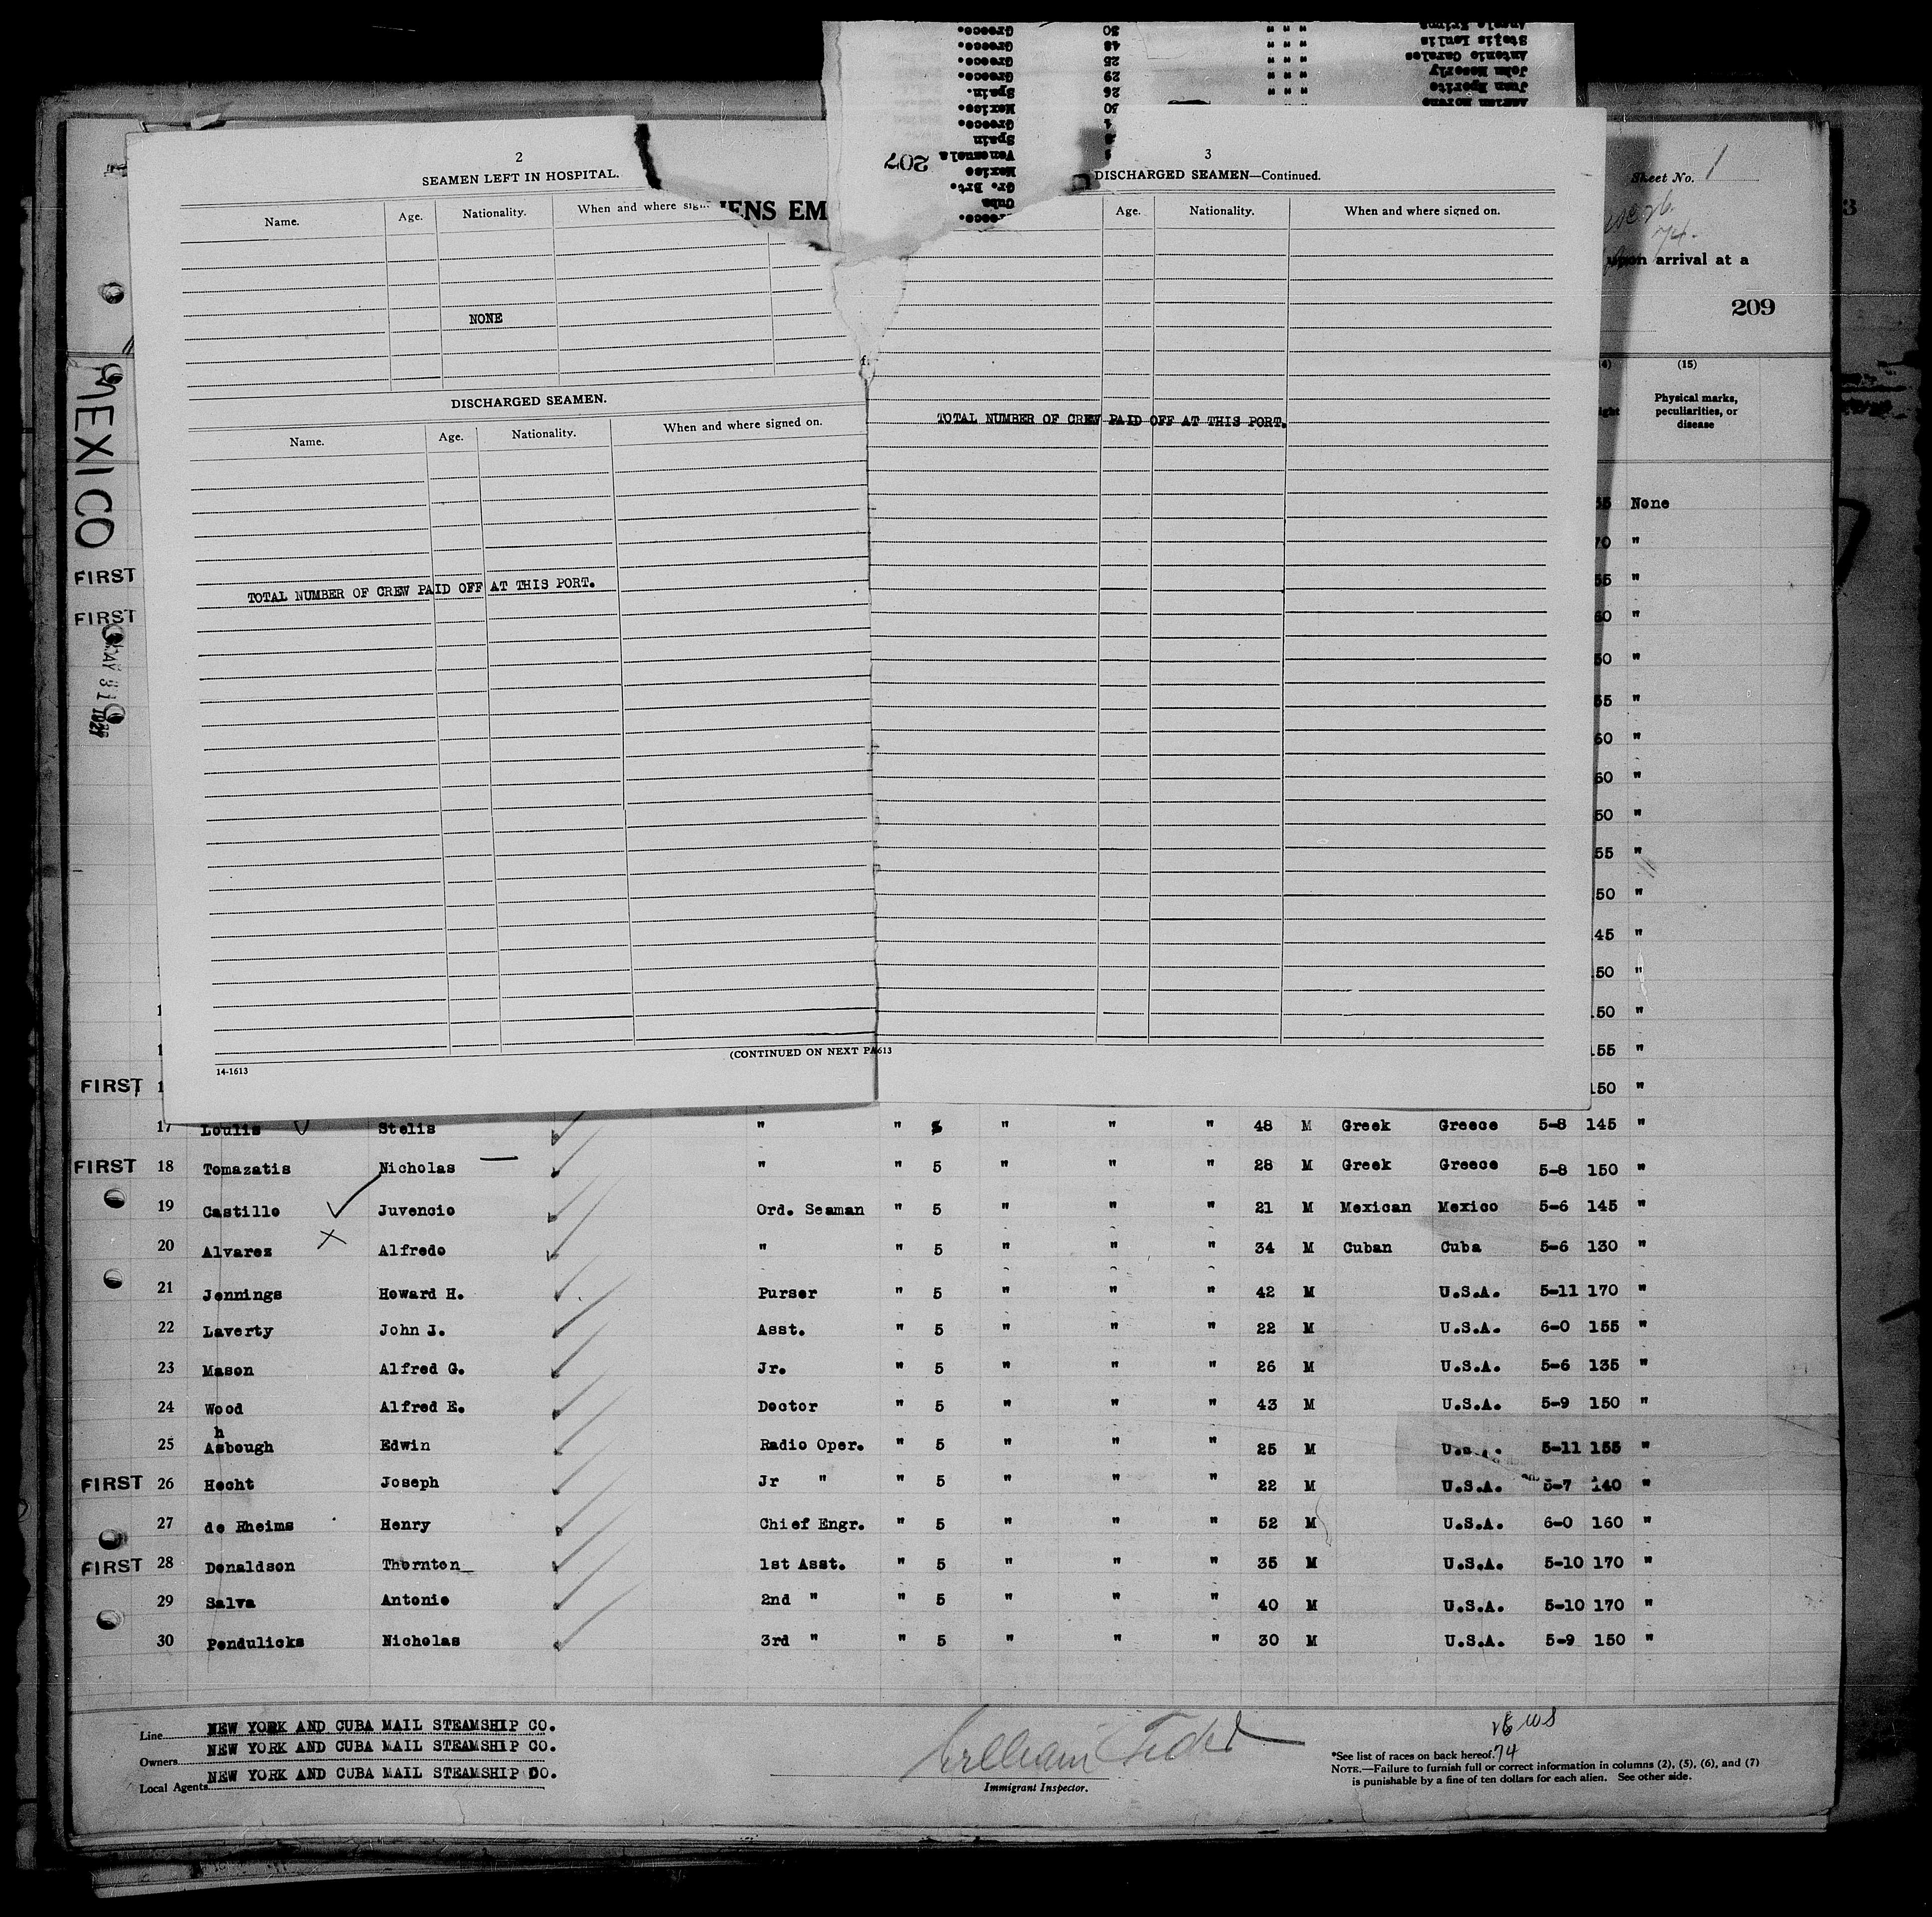 Greece. 30 " " "
Greece. 48 " " " Stelis Loulis
Greece. 25 " " " Antonio Carales
Greece. 29 " " " John
Spain. 26 " " " Juan
Mexico. 30
Greece.
Spain
Venezuela
Mexico
Gr. Brt.
Cuba
207
2
SEAMEN LEFT IN HOSPITAL.
Name. Age. Nationality. When and where
NONE
DISCHARGED SEAMEN.
Name. Age. Nationality. When and where signed on.
TOTAL NUMBER OF CREW PAID OFF AT THIS PORT.
(CONTINUED ON NEXT
14-1613
ENS EM
3
DISCHARGED SEAMEN—Continued.
Age. Nationality. When and where signed on.
TOTAL NUMBER OF CREW PAID OFF AT THIS PORT.
613
Sheet No. 1
74.
upon arrival at a
209
(15)
Physical marks, peculiarities, or disease
MEXICO
FIRST
FIRST
None
70 "
55 "
60 "
50 "
55 "
60 "
60 "
50 "
55 "
50 "
45 "
50 "
50 "
55 "
FIRST 150 "
17 Loulis Stelis " " " " " 48 M Greek Greece 5-8 145 "
FIRST 18 Tomazatis Nicholas " " 5 " " " 28 M Greek Greece 5-8 150 "
19 Castillo Juvencio Ord. Seaman " 5 " " " 21 M Mexican Mexico 5-6 145 "
20 Alvarez Alfredo " " 5 " " " 34 M Cuban Cuba 5-6 130 "
21 Jennings Howard H. Purser " 5 " " " 42 M U.S.A. 5-11 170 "
22 Laverty John J. Asst. " 5 " " " 22 M U.S.A. 6-0 155 "
23 Mason Alfred G. Jr. " 5 " " " 26 M U.S.A. 5-6 135 "
24 Wood Alfred E. Doctor " 5 " " " 43 M U.S.A. 5-9 150 "
h
25 Asbough Edwin Radio Oper. " 5 " " " 25 M U.S.A. 5-11 155 "
FIRST 26 Hecht Joseph Jr " " 5 " " " 22 M U.S.A. 5-7 140 "
27 de Rheims Henry Chief Engr. " 5 " " " 52 M U.S.A. 6-0 160 "
FIRST 28 Donaldson Thornton 1st Asst. " 5 " " " 35 M U.S.A. 5-10 170 "
29 Salva Antonio 2nd " " 5 " " " 40 M U.S.A. 5-10 170 "
30 Pendulicks Nicholas 3rd " " 5 " " " 30 M U.S.A. 5-9 150 "
Line NEW YORK AND CUBA MAIL STEAMSHIP CO.
Owners NEW YORK AND CUBA MAIL STEAMSHIP CO.
Local Agents NEW YORK AND CUBA MAIL STEAMSHIP CO.
William
Immigrant Inspector.
*See list of races on back hereof. 74
NOTE.—Failure to furnish full or correct information in columns (2), (5), (6), and (7)
is punishable by a fine of ten dollars for each alien. See other side.